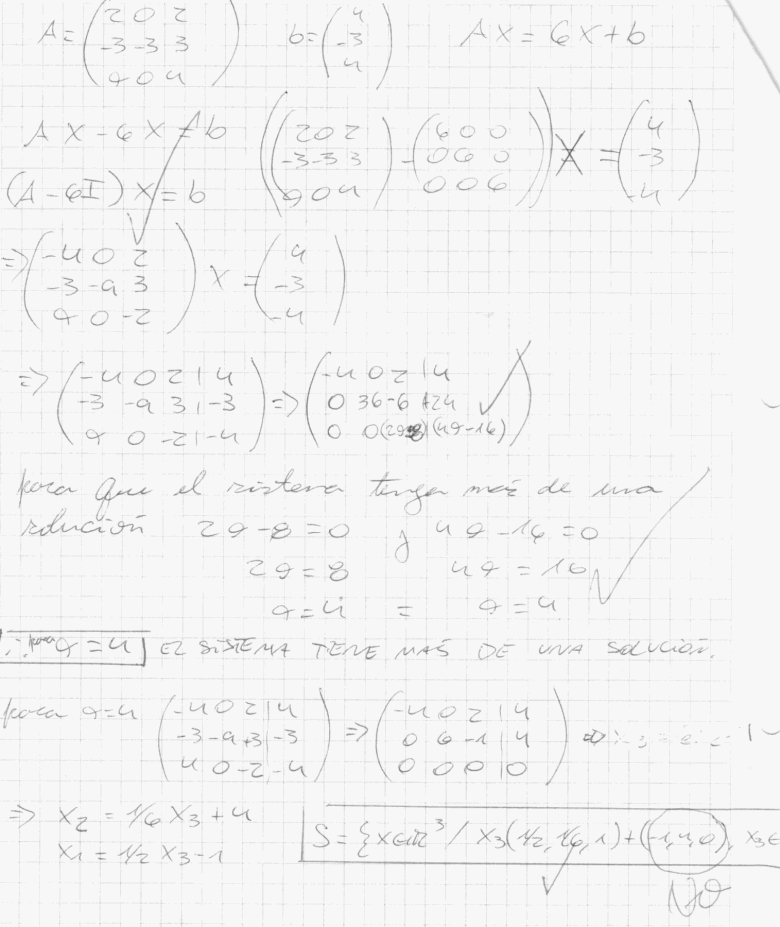 A = ( 2 0 2 / -3 -3 3 / a 0 4 )   b = ( 4 / -3 / -4 )   AX = 6X + b
AX - 6X = b   ( ( 2 0 2 / -3 -3 3 / a 0 4 ) - ( 6 0 0 / 0 6 0 / 0 0 6 ) ) X = ( 4 / -3 / -4 )
(A - 6I) X = b
=> ( -4 0 2 / -3 -9 3 / a 0 -2 ) X = ( 4 / -3 / -4 )
=> ( -4 0 2 | 4 / -3 -9 3 | -3 / a 0 -2 | -4 ) => ( -4 0 2 | 4 / 0 36 -6 | +24 / 0 0 (2a-8) | (4a-16) )
para que el sistema tenga más de una
solución 2a - 8 = 0 y 4a - 16 = 0
2a = 8   4a = 16
a = 4 = a = 4
∴ para a = 4 EL SISTEMA TIENE MAS DE UNA SOLUCIÓN.
para a = 4 ( -4 0 2 | 4 / -3 -9 +3 | -3 / 4 0 -2 | -4 ) => ( -4 0 2 | 4 / 0 6 -1 | 4 / 0 0 0 | 0 )
=> X2 = 1/6 X3 + 4
X1 = 1/2 X3 - 1
S = { X ∈ ℝ^3 / X3 (1/2, 1/6, 1) + (-1, 4, 0), X3 ∈
NO